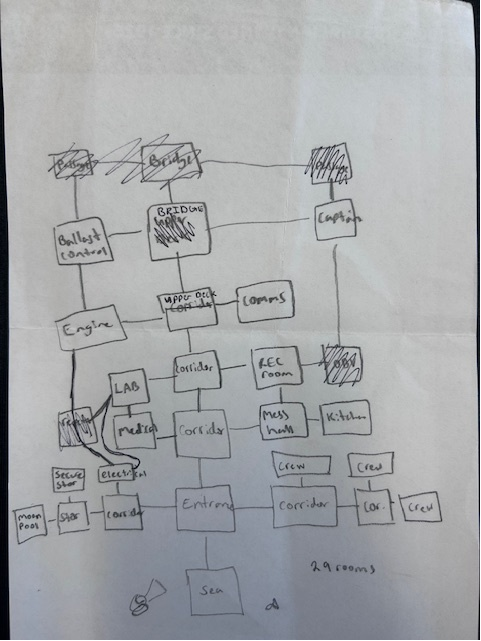 Bridge
BRIDGE
upper
Captain
Ballast
control
UPPER Deck
Corridor
COMMS
Engine
Corridor
REC
room
OBV
LAB
Medical
Corridor
Mess
hall
Kitchen
Secure
Stor
electrical
Crew
Crew
Moon
Pool
Stor
Corridor
Entrance
Corridor
Cor.
Crew
Sea
29 rooms